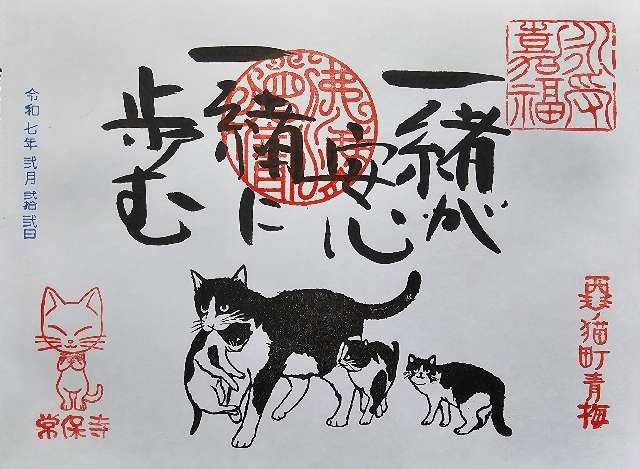 永受
嘉福
一緒が
安心
一緒に
歩む
令和七年 弐月 弐拾弐日
猫町青梅
常保寺